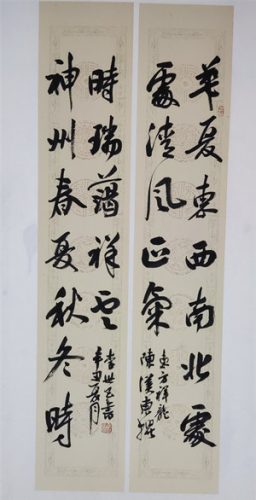 華夏東西南北處
處清風正氣
東方祥龍
陳漢東撰
神州春夏秋冬時
時瑞藹祥雲
李世書
辛丑夏月